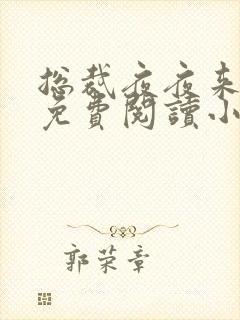 总裁夜夜来
免費閱讀小
郭荣章